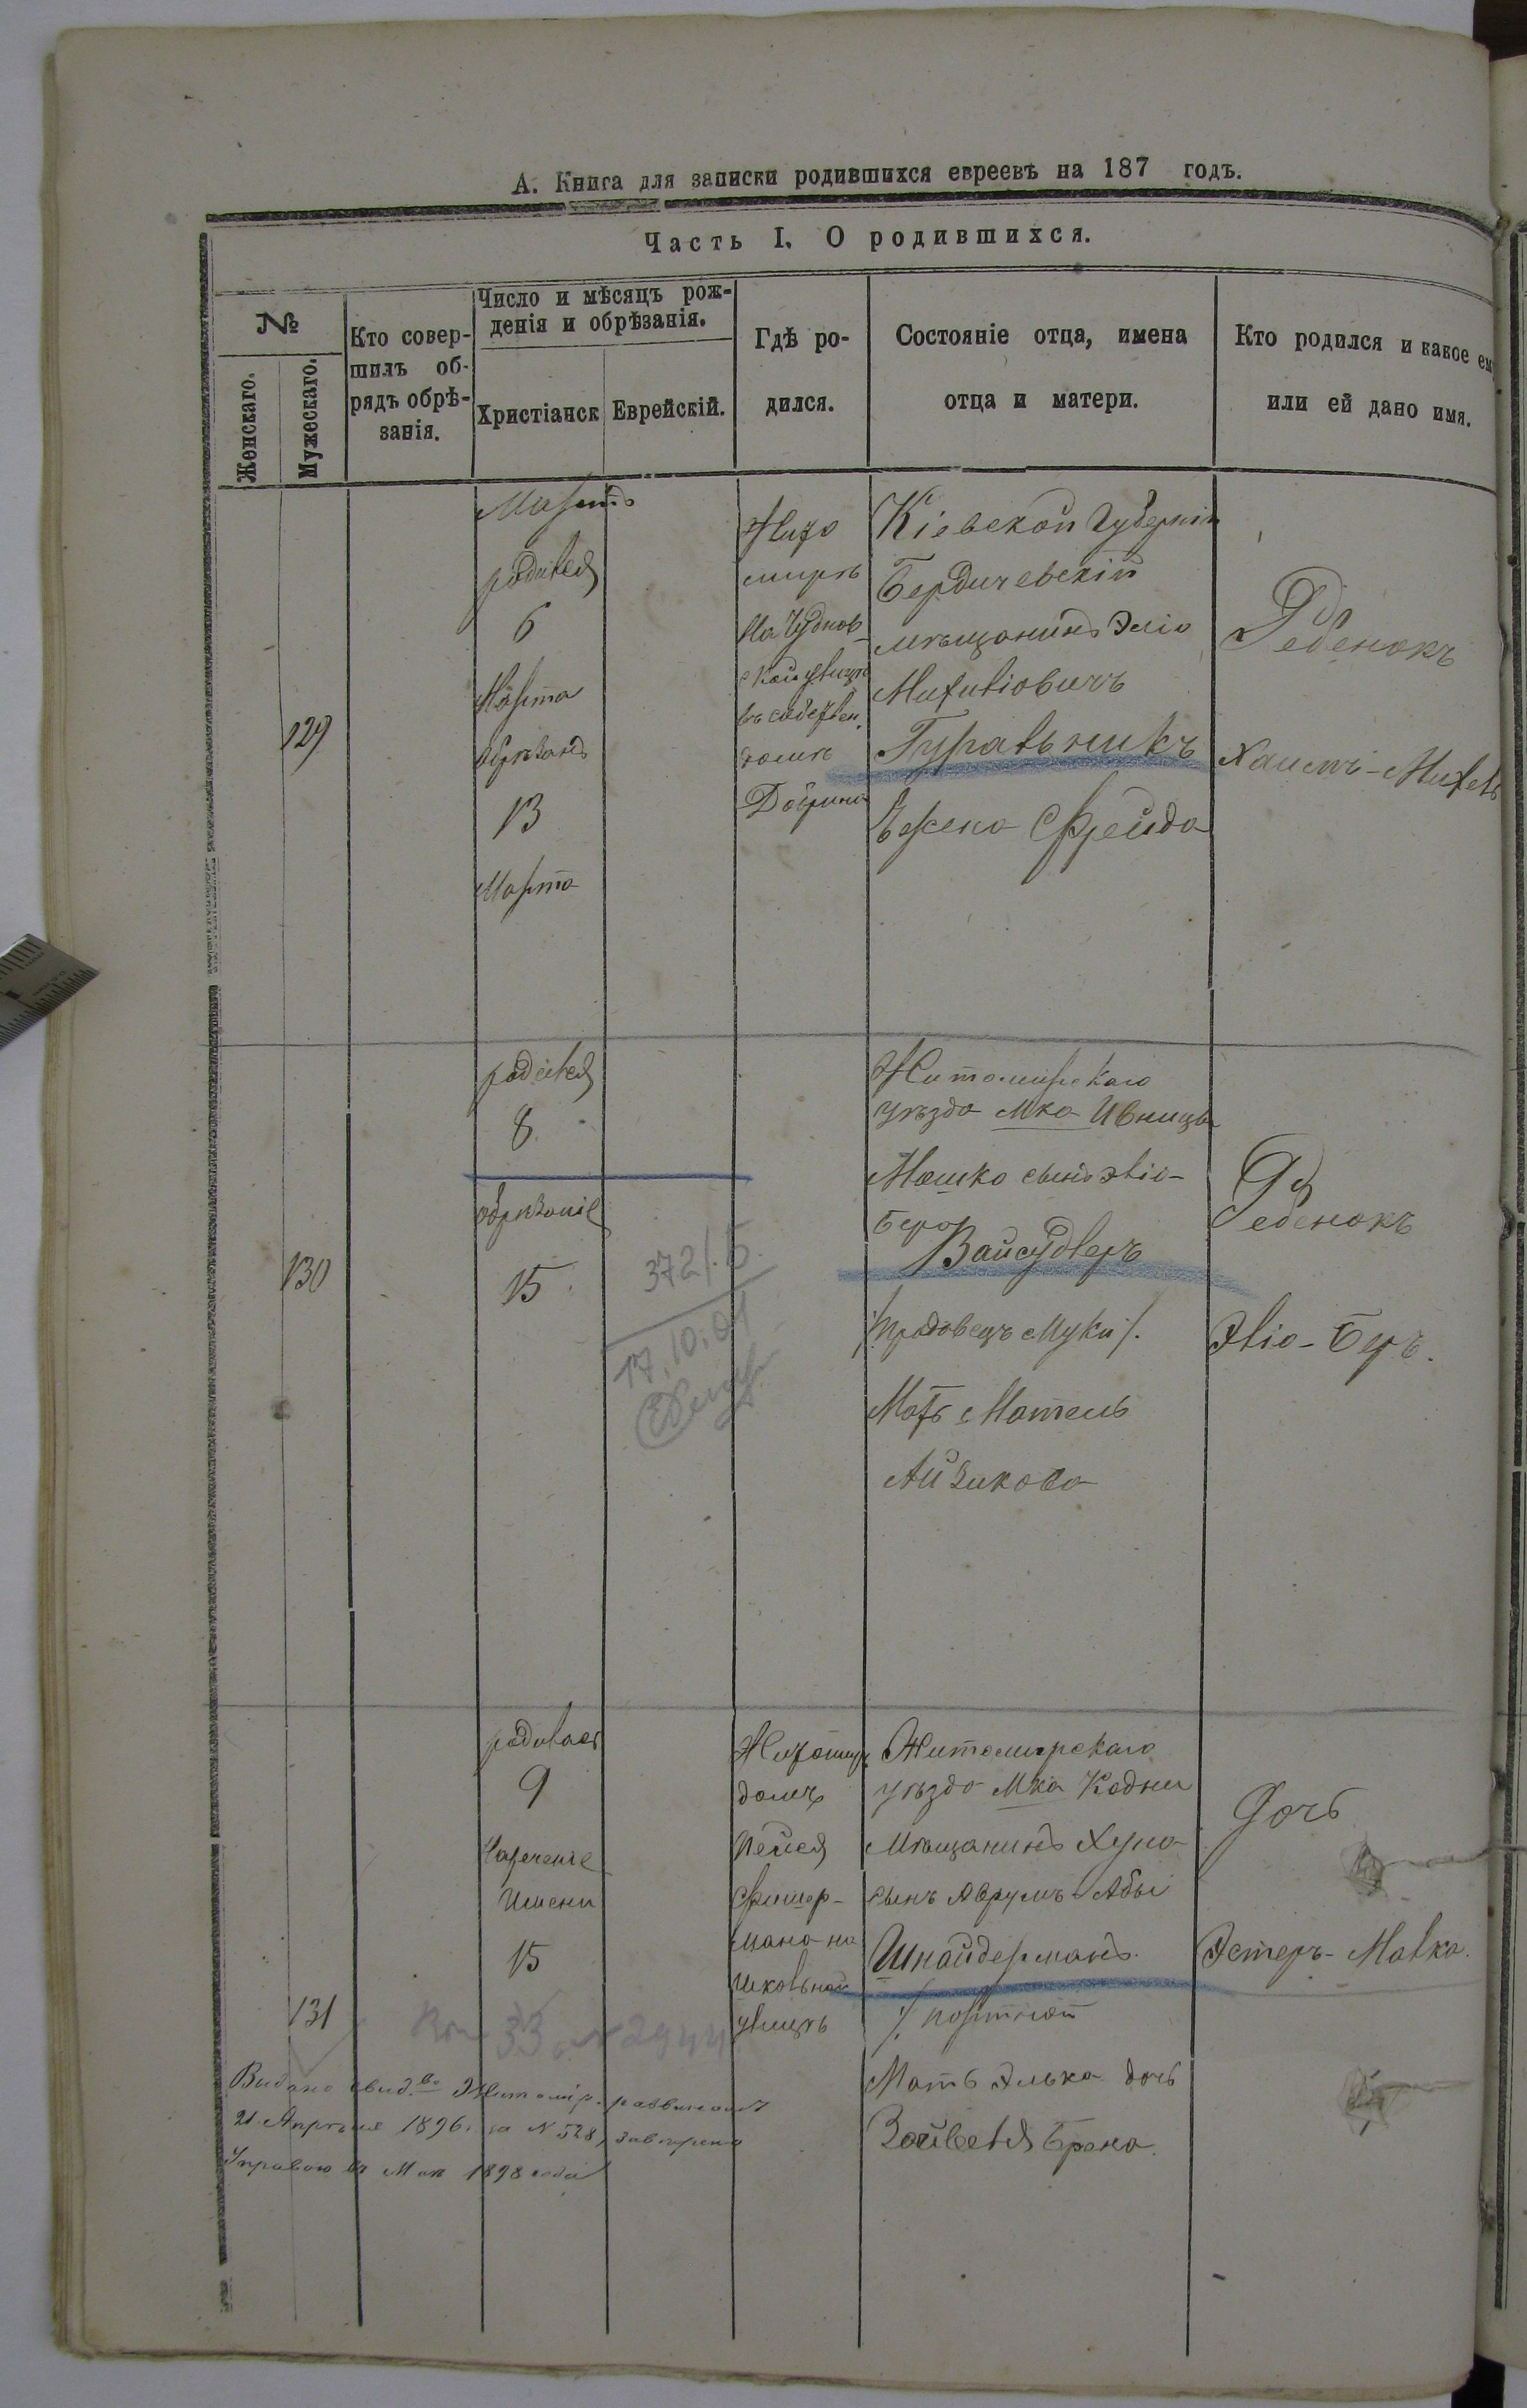 А. Книга для записки родившихся евреевъ на 187 годъ.
Часть I. О родившихся.
№
Женскаго.
Мужескаго.
Кто совер-
шилъ об-
рядъ обрѣ-
занія.
Число и мѣсяцъ рож-
денія и обрѣзанія.
Христіанск
Еврейскій.
Гдѣ ро-
дился.
Состояніе отца, имена
отца и матери.
Кто родился и какое ему
или ей дано имя.
129
Мартъ
родився
6
Марта
обрѣзанъ
13
Марта
Жито
миръ
На Чуднов-
ской улицѣ
въ собствен.
домѣ
Кіевской Губерніи
Бердичевскій
мѣщанинъ Элio
Михиліовичъ
Гуральникъ
Ѣжена Фрейда
Ребенокъ
Хаимъ-Михель
130
родився
8
обрѣзаніе
15
372/.Б.
17.10.01
Житомирскаго
уѣзда Мка Ивницы
Мошко сынъ Эліо-
Бера
Вайсудлеръ
/торговецъ Муки/.
Мать Мотель
Айзикова
Ребенокъ
Эліо-Беръ.
131
родилась
9
Нареченіе
Имени
15
Житомир
домъ
Фишер-
мана на
Школьной
улицѣ
Житомирскаго
уѣзда Мка Кодни
Мѣщанинъ Хуна
сынъ Аврумъ-Абы
Шнайдерманъ.
/портной
Мать Элька дочь
Зейвеля Брана.
Дочь
Эстеръ-Малка.
33 2944
Видано свид.во Житомір. раввиномъ
21 Апрѣля 1896. за N 528, завѣрено
Управою въ Маѣ 1898 года